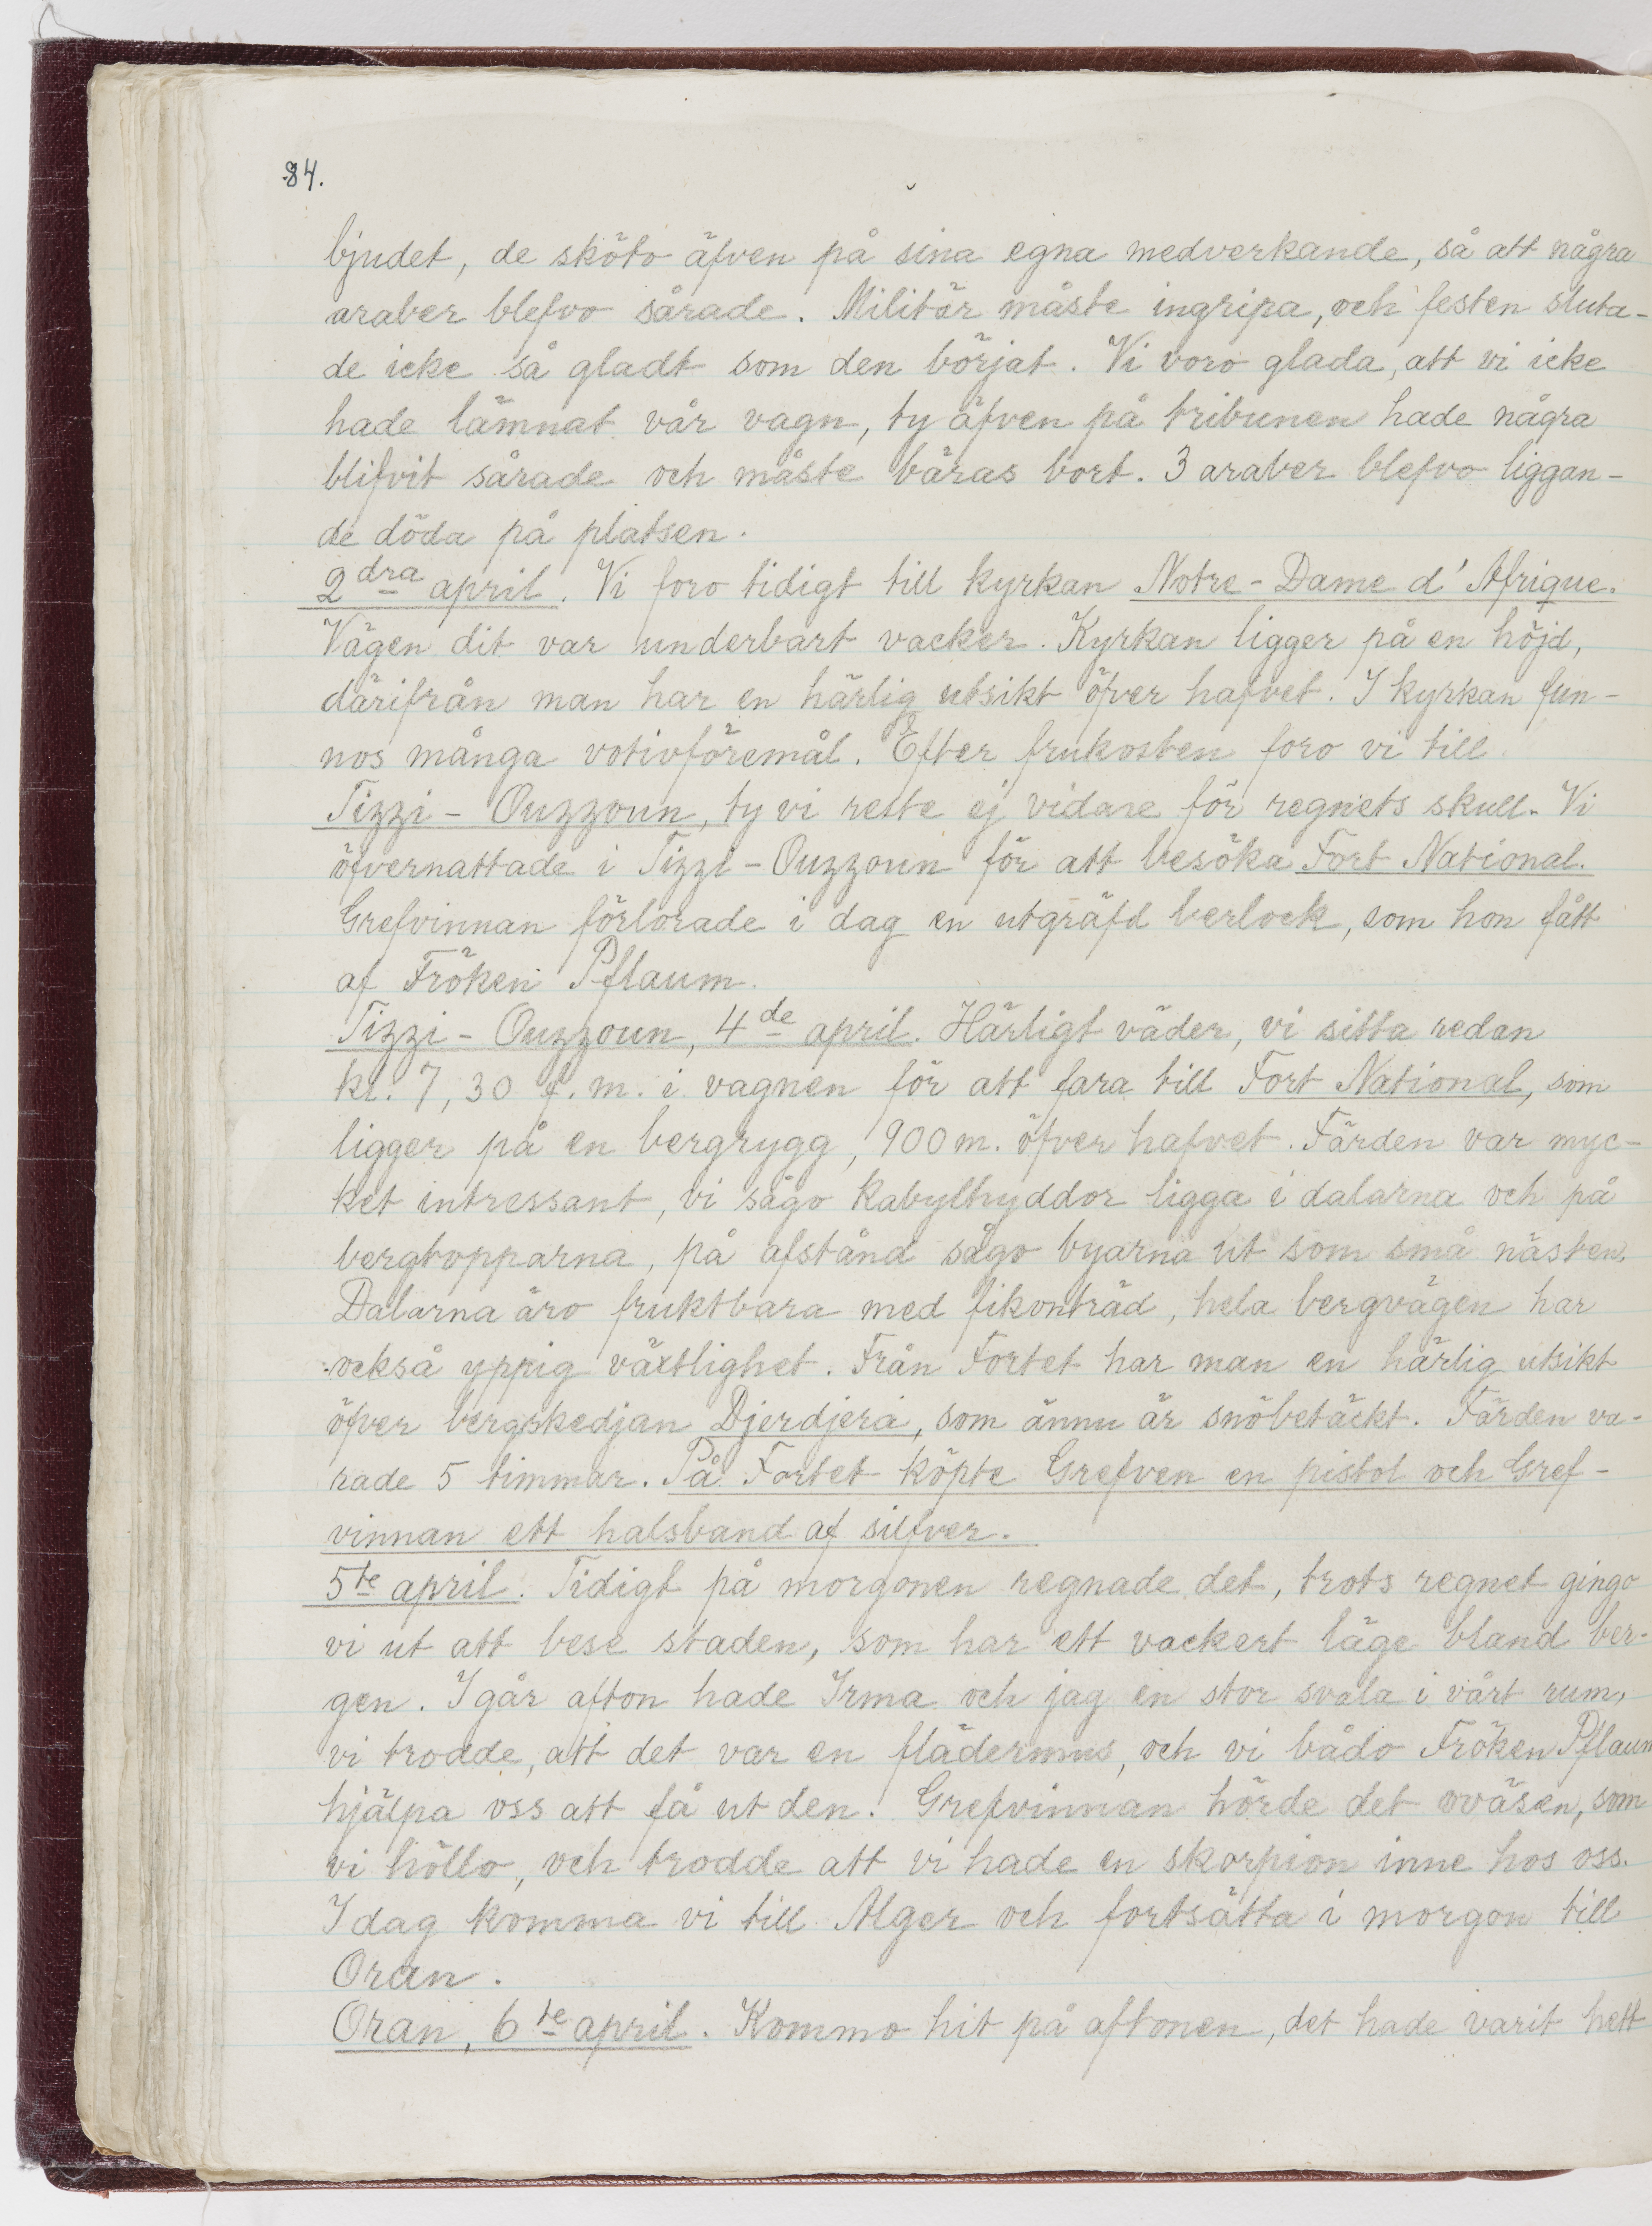 84.
bjudet, de sköto äfven på sina egna medverkande, så att några
araber blefvo sårade. Militär måste ingripa, och festen sluta-
de icke så gladt som den börjat. Vi voro glada, att vi icke
hade lämnat vår vagn, ty äfven på tribunen hade några
blifvit sårade och måste bäras bort. 3 araber blefvo liggan-
de döda på platsen.
2dra april. Vi foro tidigt till kyrkan Notre-Dame d'Afrique.
Vägen dit var underbart vacker. Kyrkan ligger på en höjd,
därifrån man har en härlig utsikt öfver hafvet. I kyrkan fun-
nos många votivföremål. Efter frukosten foro vi till
Tizzi-Ouzzoun, ty vi reste ej vidare för regnets skull. Vi
öfvernattade i Tizzi-Ouzzoun för att besöka Fort National.
Grefvinnan förlorade i dag en utgräfd berlock, som hon fått
af Fröken Pflaum.
Tizzi-Ouzzoun, 4de april. Härligt väder, vi sitta redan
kl. 7,30 f.m. i vagnen för att fara till Fort National, som
ligger på en bergrygg, 900 m. öfver hafvet. Färden var myc-
ket intressant, vi sågo kabylhyddor ligga i dalarna och på
bergtopparna, på afstånd sågo byarna ut som små nästen.
Dalarna äro fruktbara med fikonträd, hela bergvägen har
också yppig växtlighet. Från Fortet har man en härlig utsikt
öfver bergskedjan Djerdjera, som ännu är snöbetäckt. Färden va-
rade 5 timmar. På Fortet köpte Grefven en pistol och Gref-
vinnan ett halsband af silfver.
5te april. Tidigt på morgonen regnade det, trots regnet gingo
vi ut att bese staden, som har ett vackert läge bland ber-
gen. Igår afton hade Irma och jag en stor svala i vårt rum,
vi trodde, att det var en flädermus, och vi bådo Fröken Pflaum
hjälpa oss att få ut den. Grefvinnan hörde det oväsen, som
vi höllo, och trodde att vi hade en skorpion inne hos oss.
Idag komma vi till Alger och fortsätta i morgon till
Oran.
Oran, 6te april. Kommo hit på aftonen, det hade varit hett